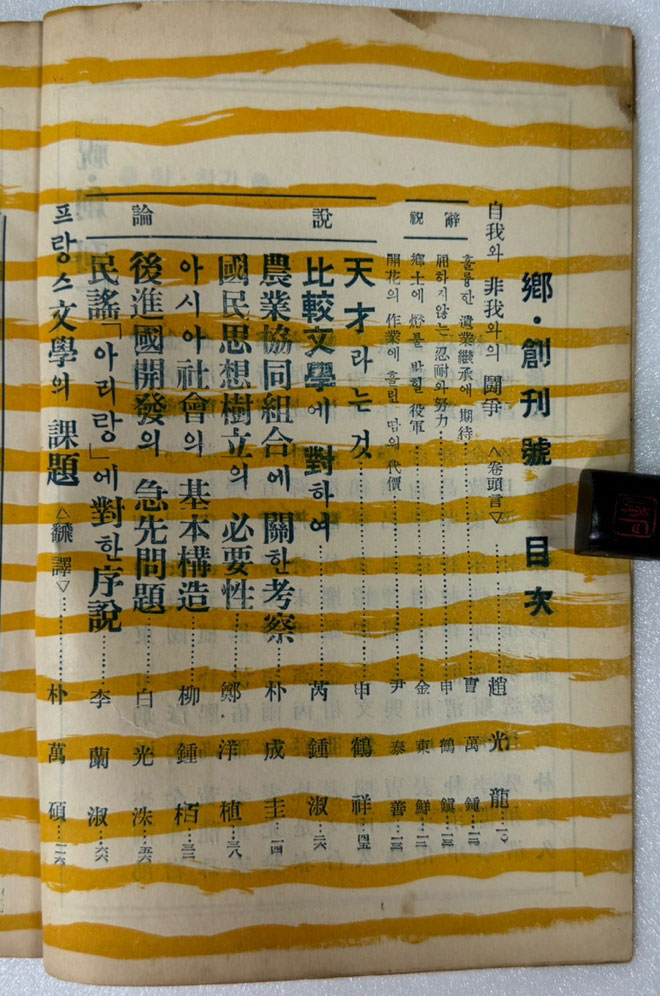 鄕·創刊號 目次
自我와 非我와의 鬪爭 <卷頭言>……趙光龍…一〇
祝辭
훌륭한 遺業繼承에 期待……曺萬鍾…一二
屈하지않는 忍耐와 努力……申鶴鎭…一三
鄕土에 燈불 밝힐 役軍……金東鮮…一二
開花의 作業에 흘린 땀의 代價……尹泰善…一三
論說
天才라는 것……申鶴祥…四五
比較文學에 對하여……芮鍾淑…二六
農業協同組合에 關한 考察……朴成圭…一四
國民思想樹立의 必要性……鄭洋植…三八
아시아社會의 基本構造……柳鍾栢…三二
後進國開發의 急先問題……白光洙…五六
民謠「아리랑」에 對한 序說……李蘭淑…六六
프랑스文學의 課題 <飜譯>……朴萬碩…二六